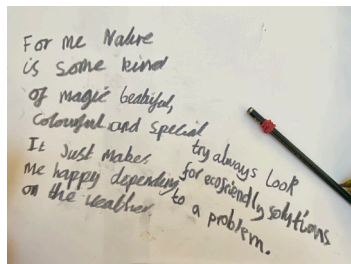 For me Nature
is some kind
of magic beatiful,
Colourful and special
It Just makes
me happy depending
on the weather.
try always look
for ecofriendly solutions
to a problem.